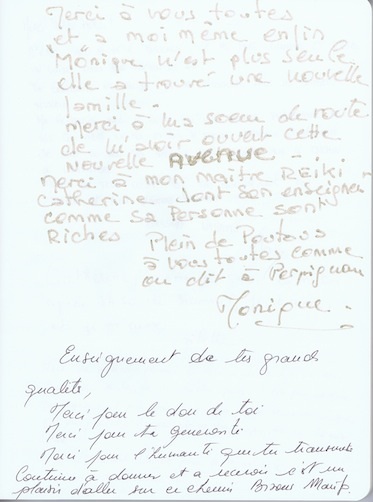 Merci à vous toutes
et a moi même enfin
"Monique n'est plus seule
elle a trouvé une nouvelle
famille.
Merci à ma soeur de route
de m'avoir ouvert cette
nouvelle AVENUE -
merci à mon maître REIKI -
Catherine dont son enseignement
comme sa Personne sont
Riches Plein de Poutous
à vous toutes comme
on dit à Perpignan
Monique -
Enseignement de très grande
qualité,
Merci pour le don de toi
Merci pour ta générosité
Merci pour l'humanité que tu transmets
Continue à donner et a recevoir c'est un
plaisir d'aller sur ce chemin Bisous